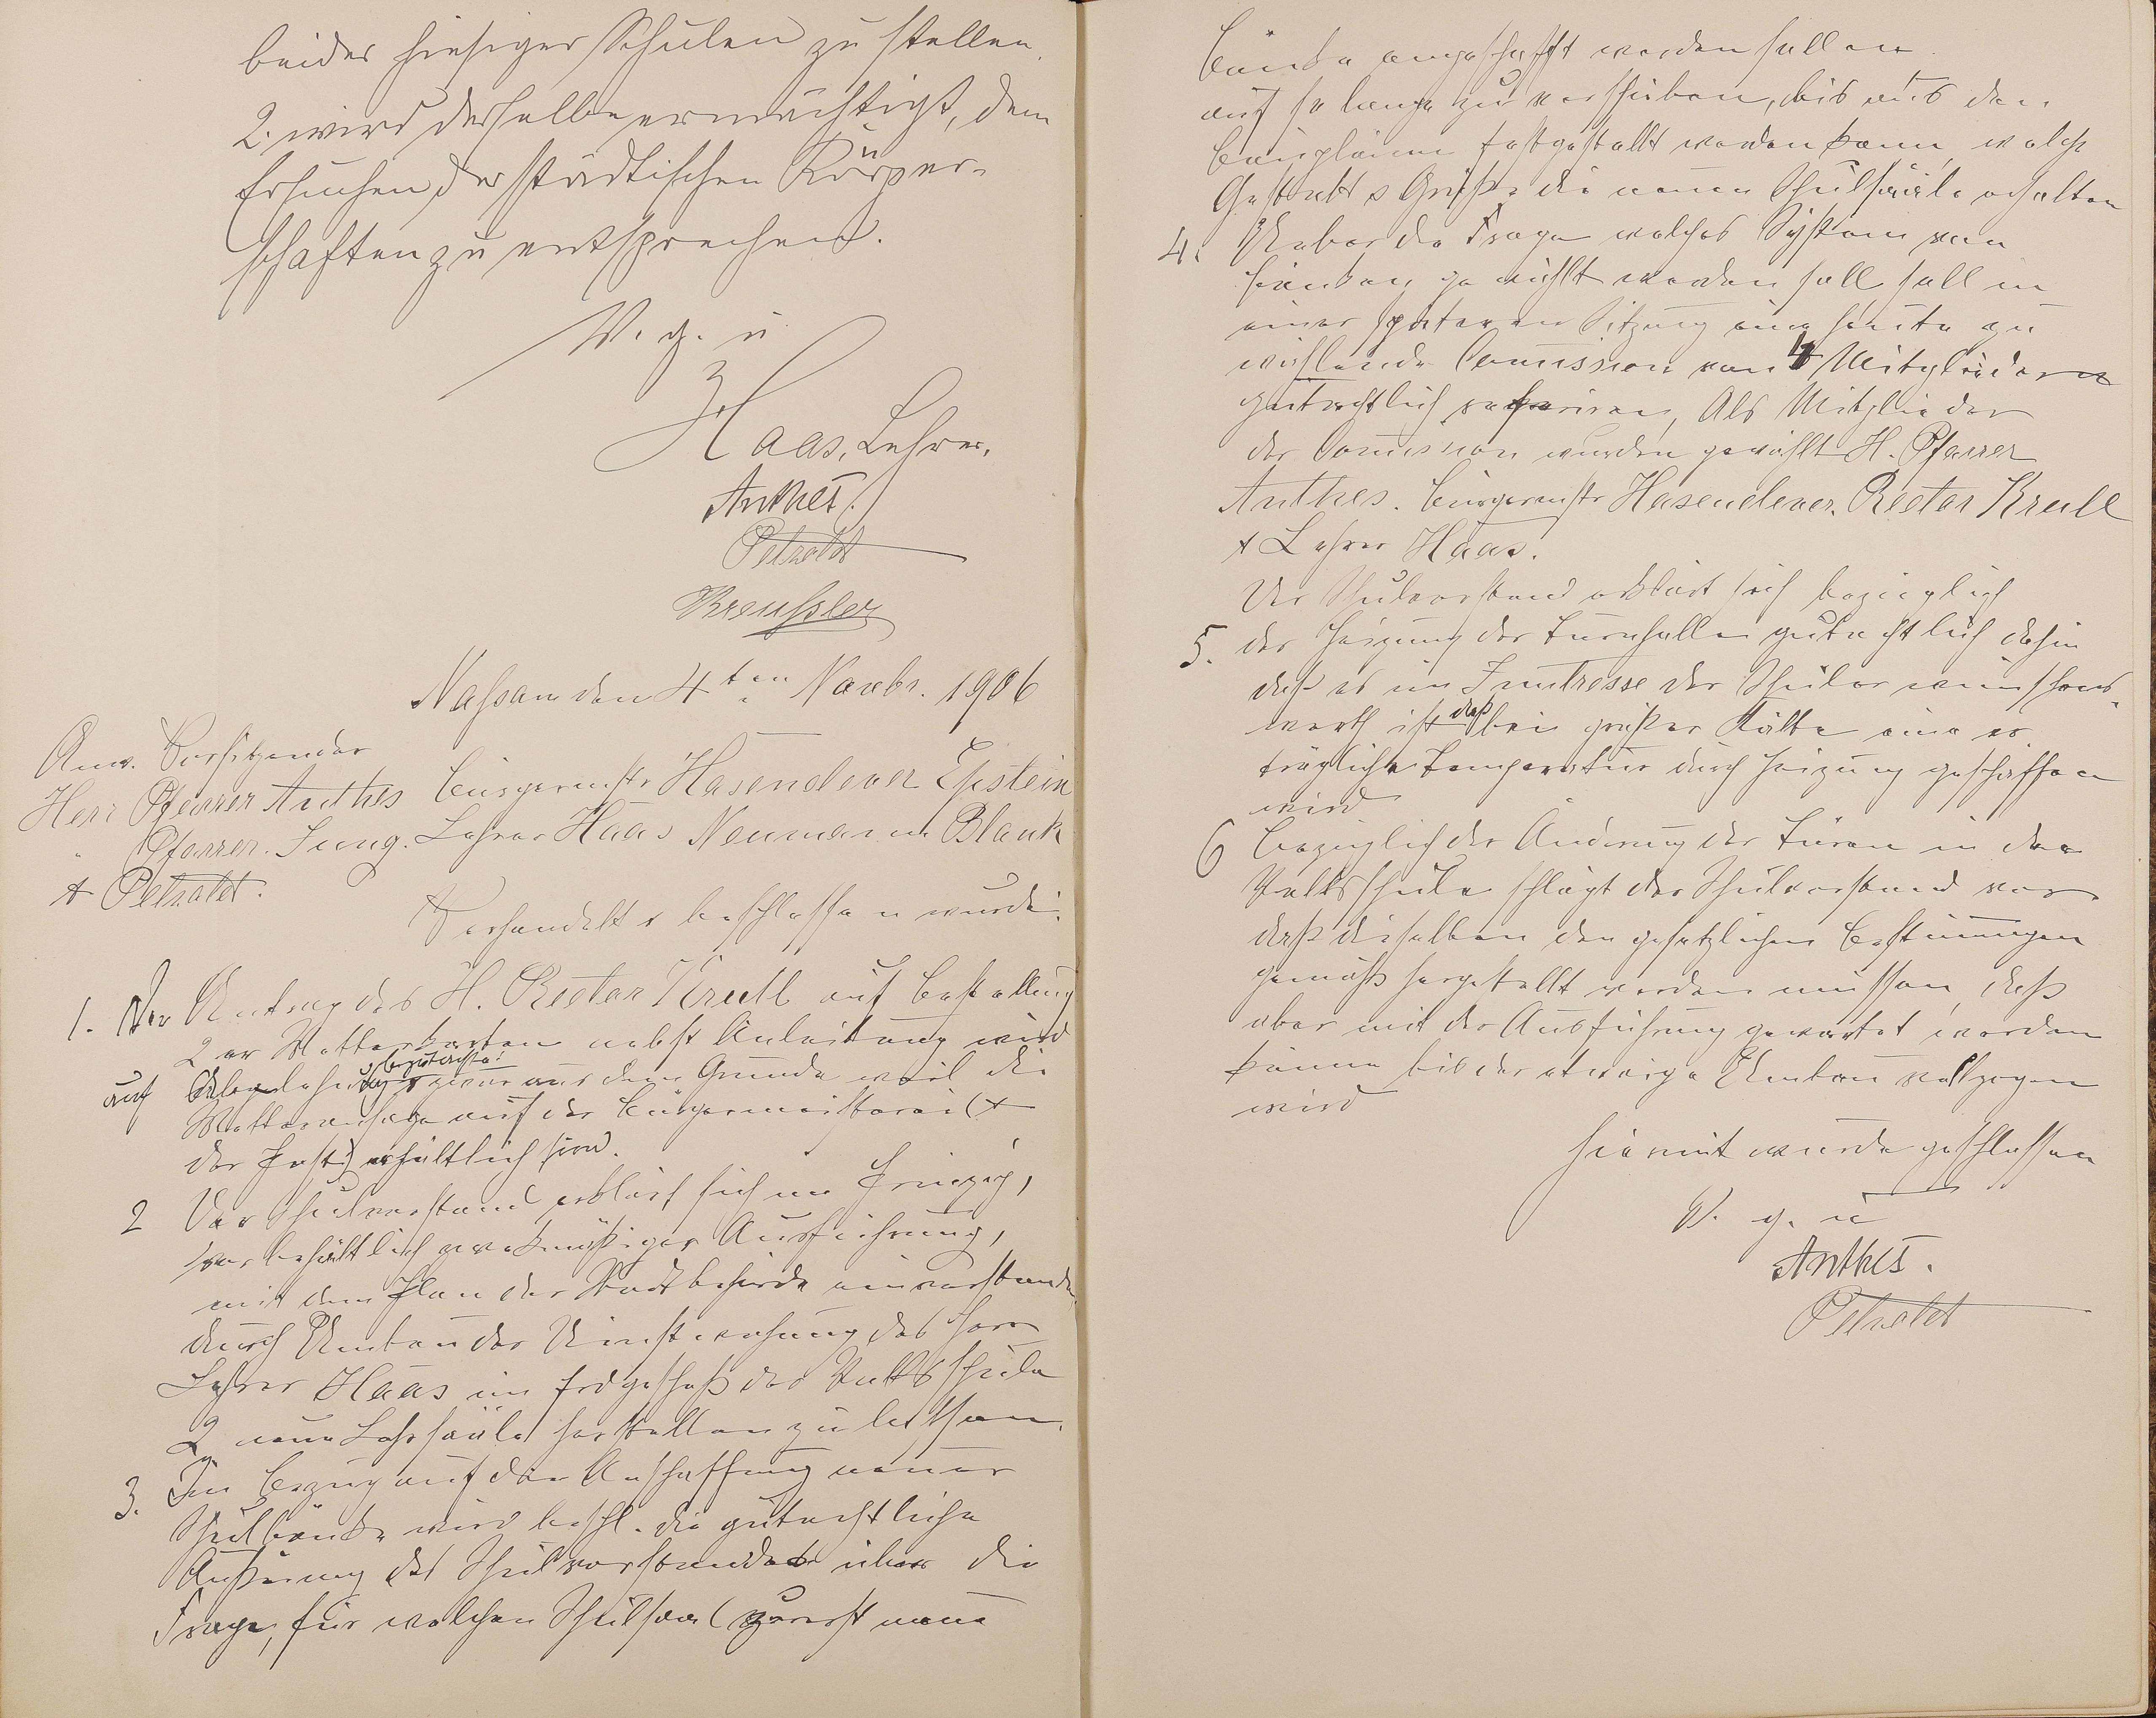 beider hiesiger Schulen zu stellen.
2. wird derselbe ermächtigt, dem
Ersuchen der städtischen Körper-
schaften zu entsprechen.
V. g. u
Haas, Lehrer.
Anthes.
Petzoldt
Kreußler
Nassau den 4ten Novbr. 1906
Anw. Vorsitzender
Herr Pfarrer Anthes Bürgermstr Hasenclever Epstein
" Pfarrer Jung. Lehrer Haas Neumann Blank
+ Petzoldt.
Verhandelt u beschlossen wurde:
1. Der Antrag des H. Rector Krull auf Bestellung
2er Wetterkarten nebst Anleitung wird
auf begutachtet zwar aus dem Grunde weil die
auf der Bürgermeisterei (+
der Post) erhältlich sind.
2 Der Schulvorstand erklärt sich im Prinzip,
vorbehaltlich zweckmäßiger Ausführung,
mit dem Plan der Stadtbehörde einverstanden,
durch Umbau der Dienstwohnung des Herrn
Lehrer Haas im Erdgeschoß der Volksschule
2 neue Lehrsäle herstellen zu lassen.
3. In Bezug auf die Anschaffung neuer
Schulbänke wird beschl. die gutachtliche
Äußerung des Schulvorstandes über die
Frage, für welchen Schulsaal zuerst neue
Bänke angeschafft werden sollen
auf so lange zu verschieben, bis aus den
Bauplänen festgestellt werden kann, welche
Gestalt u Größe die neuen Schulsääle erhalten
4. Ueber die Frage welches System von
Bänken gewählt werden soll soll in
einer späteren Sitzung eine heute zu
wählende Commission von 4 Mitgliedern
gutachtlich referiren, Als Mitglieder
der Commission wurden gewählt H. Pfarrer
Anthes. Bürgermstr Hasenclever. Rector Krull
+ Lehrer Haas.
Der Schulvorstand erklärt sich bezüglich
5. der Heizung der Turnhalle gutachtlich dahin
daß es im Interesse der Schüler wünschens-
werth ist daß bei großer Kälte eine er
trägliche Temperatur durch Heizung geschaffen
wird
6 Bezüglich der Änderung der Türen in der
Volksschule schlägt der Schulvorstand vor
daß dieselben den gesetzlichen Bestimmungen
gemäß hergestellt werden müssen, daß
aber mit der Ausführung gewartet werden
könne bis der etwaige Umbau vollzogen
wird
Hiermit wurde geschlossen
V. g. u
Anthes.
Petzoldt